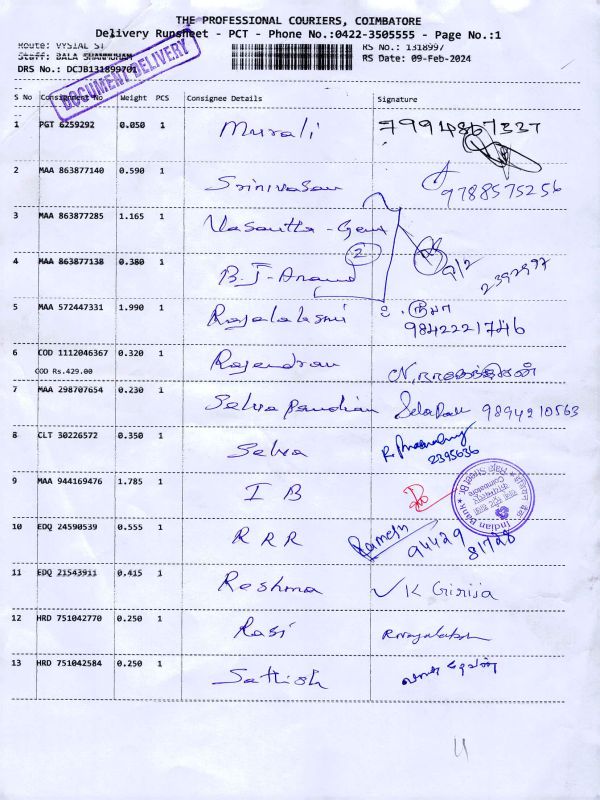 THE PROFESSIONAL COURIERS, COIMBATORE
Delivery Runsheet - PCT - Phone No.:0422-3505555 - Page No.:1
Route: VYSIAL ST
RS No.: 1318997
Staff: BALA SHANMUHAM
RS Date: 09-Feb-2024
DRS No.: DCJB131899701
DOCUMENT DELIVERY
S No Consignment No Weight PCS Consignee Details Signature
1 PGT 6259292 0.050 1 Murali 7994867337
2 MAA 863877140 0.590 1 Srinivasan 9788575256
3 MAA 863877285 1.165 1 Vasantha - Gem
2
4 MAA 863877138 0.380 1 B.J-Anand 9/2 2392997
5 MAA 572447331 1.990 1 Rajalakshmi
9842221746
6 COD 1112046367 0.320 1 Rajendran N.ராஜேந்திரன்
COD Rs.429.00
7 MAA 298707654 0.230 1 Selva pandian 9894210563
8 CLT 30226572 0.350 1 Selva
2395636
9 MAA 944169476 1.785 1 I B
Indian Bank
Raja Street Br.
Coimbatore
10 EDQ 24590539 0.555 1 R R R Ramesh 94429 81728
11 EDQ 21543911 0.415 1 Reshma K Girija
12 HRD 751042770 0.250 1 Rasi
13 HRD 751042584 0.250 1 Sathish